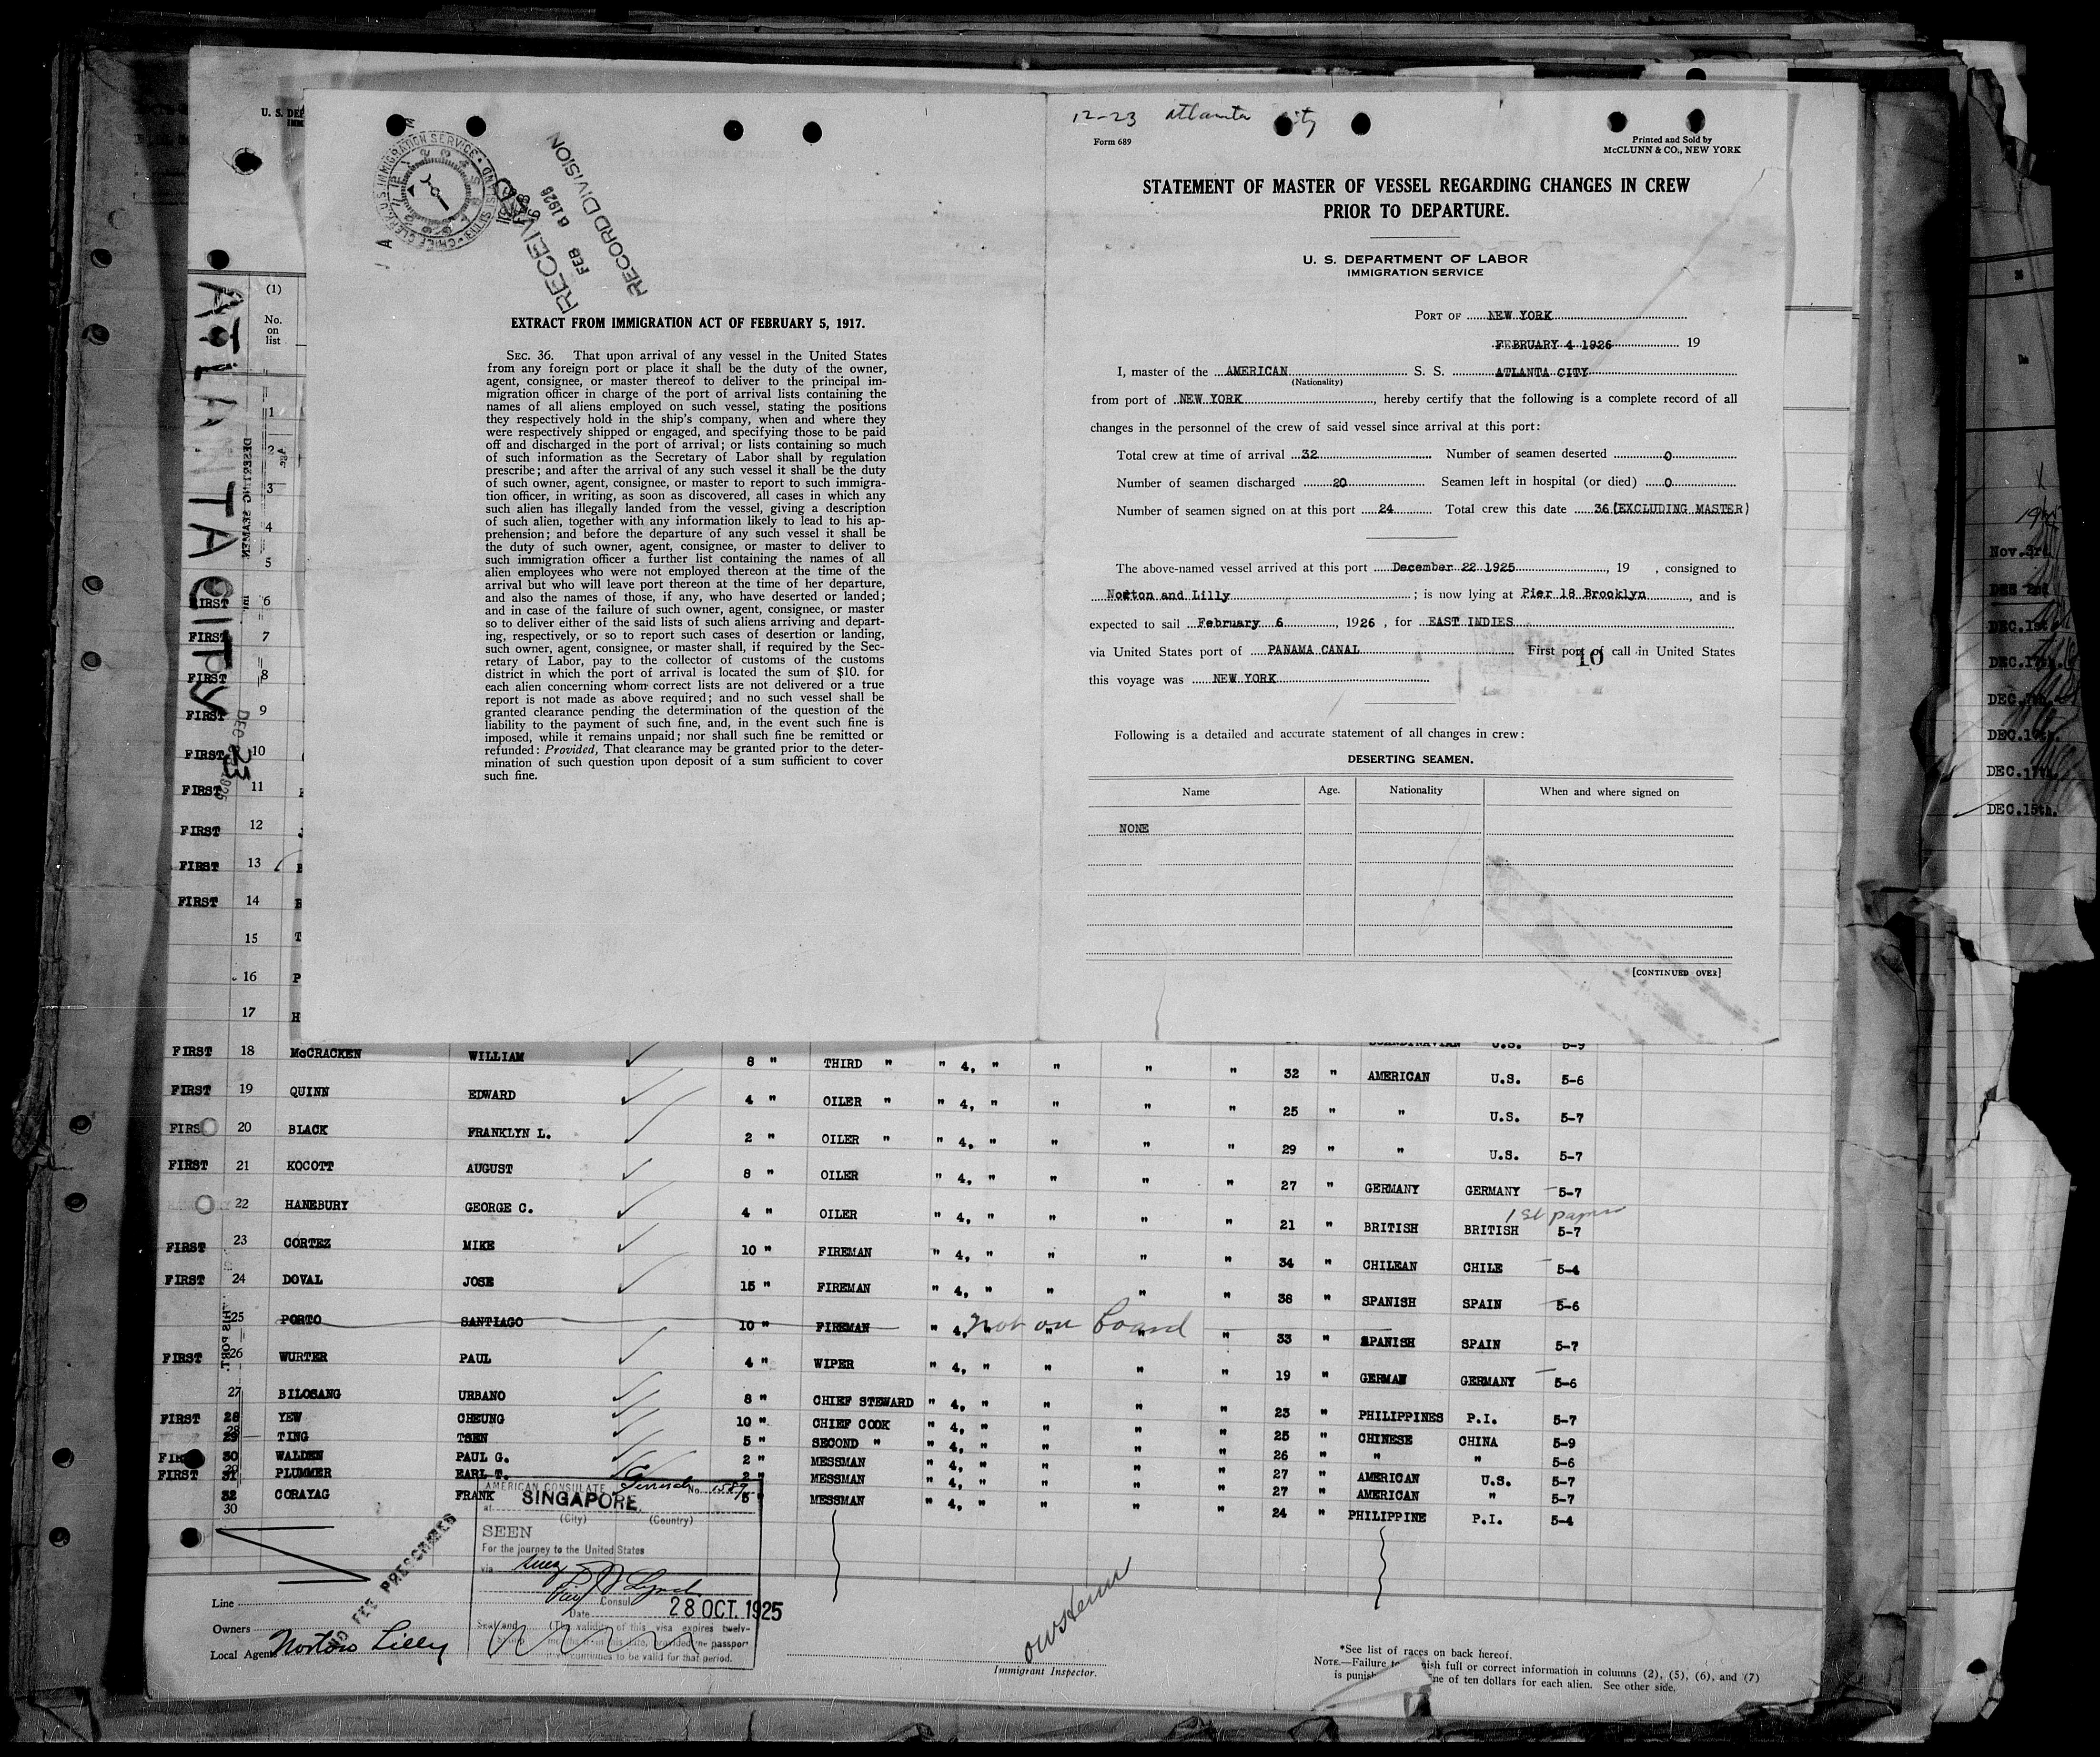 12-23 Atlanta City
Form 689
Printed and Sold by
McCLUNN & CO., NEW YORK
STATEMENT OF MASTER OF VESSEL REGARDING CHANGES IN CREW
PRIOR TO DEPARTURE.
U. S. DEPARTMENT OF LABOR
IMMIGRATION SERVICE
PORT OF NEW YORK
FEBRUARY 4 1926 19
I, master of the AMERICAN S. S. ATLANTA CITY
(Nationality)
from port of NEW YORK, hereby certify that the following is a complete record of all
changes in the personnel of the crew of said vessel since arrival at this port:
Total crew at time of arrival 32 Number of seamen deserted 0
Number of seamen discharged 20 Seamen left in hospital (or died) 0
Number of seamen signed on at this port 24 Total crew this date 36(EXCLUDING MASTER)
The above-named vessel arrived at this port December 22 1925, 19 , consigned to
Norton and Lilly; is now lying at Pier 18 Brooklyn, and is
expected to sail February 6, 1926, for EAST INDIES
via United States port of PANAMA CANAL First port of call in United States
10
this voyage was NEW YORK
Following is a detailed and accurate statement of all changes in crew:
DESERTING SEAMEN.
Name Age. Nationality When and where signed on
NONE
[CONTINUED OVER]
U. S. DEP
RECEIVED
FEB 6 1926
RECORD DIVISION
EXTRACT FROM IMMIGRATION ACT OF FEBRUARY 5, 1917.
SEC. 36. That upon arrival of any vessel in the United States
from any foreign port or place it shall be the duty of the owner,
agent, consignee, or master thereof to deliver to the principal im-
migration officer in charge of the port of arrival lists containing the
names of all aliens employed on such vessel, stating the positions
they respectively hold in the ship's company, when and where they
were respectively shipped or engaged, and specifying those to be paid
off and discharged in the port of arrival; or lists containing so much
of such information as the Secretary of Labor shall by regulation
prescribe; and after the arrival of any such vessel it shall be the duty
of such owner, agent, consignee, or master to report to such immigra-
tion officer, in writing, as soon as discovered, all cases in which any
such alien has illegally landed from the vessel, giving a description
of such alien, together with any information likely to lead to his ap-
prehension; and before the departure of any such vessel it shall be
the duty of such owner, agent, consignee, or master to deliver to
such immigration officer a further list containing the names of all
alien employees who were not employed thereon at the time of the
arrival but who will leave port thereon at the time of her departure,
and also the names of those, if any, who have deserted or landed;
and in case of the failure of such owner, agent, consignee, or master
so to deliver either of the said lists of such aliens arriving and depart-
ing, respectively, or so to report such cases of desertion or landing,
such owner, agent, consignee, or master shall, if required by the Sec-
retary of Labor, pay to the collector of customs of the customs
district in which the port of arrival is located the sum of $10. for
each alien concerning whom correct lists are not delivered or a true
report is not made as above required; and no such vessel shall be
granted clearance pending the determination of the question of the
liability to the payment of such fine, and, in the event such fine is
imposed, while it remains unpaid; nor shall such fine be remitted or
refunded: Provided, That clearance may be granted prior to the deter-
mination of such question upon deposit of a sum sufficient to cover
such fine.
ATLANTA CITY
DEC 1925
23
(1)
No.
on
list
1
2
3
4
5
FIRST 6
FIRST 7
FIRST 8
FIRST 9
FIRST 10
FIRST 11
FIRST 12
FIRST 13
FIRST 14
15
16
17
Nov.3rd.
DEC 2nd
DEC.1st
DEC.17th.
DEC.7th.
DEC.17th.
DEC.17th.
DEC.15th.
SCANDINAVIAN U.S. 5-9
FIRST 18 McCRACKEN WILLIAM 8 " THIRD " " 4, " " " " 32 " AMERICAN U.S. 5-6
FIRST 19 QUINN EDWARD 4 " OILER " " 4, " " " " 25 " " U.S. 5-7
FIRS 20 BLACK FRANKLYN L. 2 " OILER " " 4, " " " " 29 " " U.S. 5-7
FIRST 21 KOCOTT AUGUST 8 " OILER " 4, " " " " 27 " GERMANY GERMANY 5-7
1st papers
22 HANEBURY GEORGE C. 4 " OILER " 4, " " " " 21 " BRITISH BRITISH 5-7
FIRST 23 CORTEZ MIKE 10 " FIREMAN " 4, " " " " 34 " CHILEAN CHILE 5-4
FIRST 24 DOVAL JOSE 15 " FIREMAN " 4, " " " " 38 " SPANISH SPAIN 5-6
25 PORTO SANTIAGO 10 " FIREMAN " 4, " " " " 33 " SPANISH SPAIN 5-7
not on board
FIRST 26 WURTER PAUL 4 " WIPER " 4, " " " " 19 " GERMAN GERMANY 5-6
27 BILOSANG URBANO 8 " CHIEF STEWARD " 4, " " " " 23 " PHILIPPINES P.I. 5-7
FIRST 28 YEW CHEUNG 10 " CHIEF COOK " 4, " " " " 25 " CHINESE CHINA 5-9
29 TING TSEN 5 " SECOND " " 4, " " " " 26 " " " 5-6
FIR 30 WALDEN PAUL G. 2 " MESSMAN " 4, " " " " 27 " AMERICAN U.S. 5-7
FIRST 31 PLUMMER EARL T. 2 " MESSMAN " 4, " " " " 27 " AMERICAN " 5-7
32 CORAYAG FRANK 5 " MESSMAN " 4, " " " " 24 " PHILIPPINE P.I. 5-4
30
AMERICAN CONSULATE No. 1589
at SINGAPORE.
(City) (Country)
SEEN
For the journey to the United States
via Suez
Consul
Date 28 OCT. 1925
Seal and (The validity of this visa expires twelv-
continues to be valid for that period.
NO FEE PRESCRIBED
Line
Owners
Local Agents Norton Lilly
Immigrant Inspector.
*See list of races on back hereof.
NOTE.—Failure to furnish full or correct information in columns (2), (5), (6), and (7)
is punishable by fine of ten dollars for each alien. See other side.